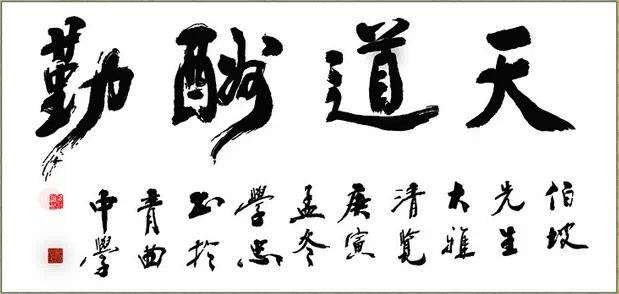 天道酬勤
伯坡
先生
大雅
清覽
庚寅
孟冬
學忠
书於
青曲
中學